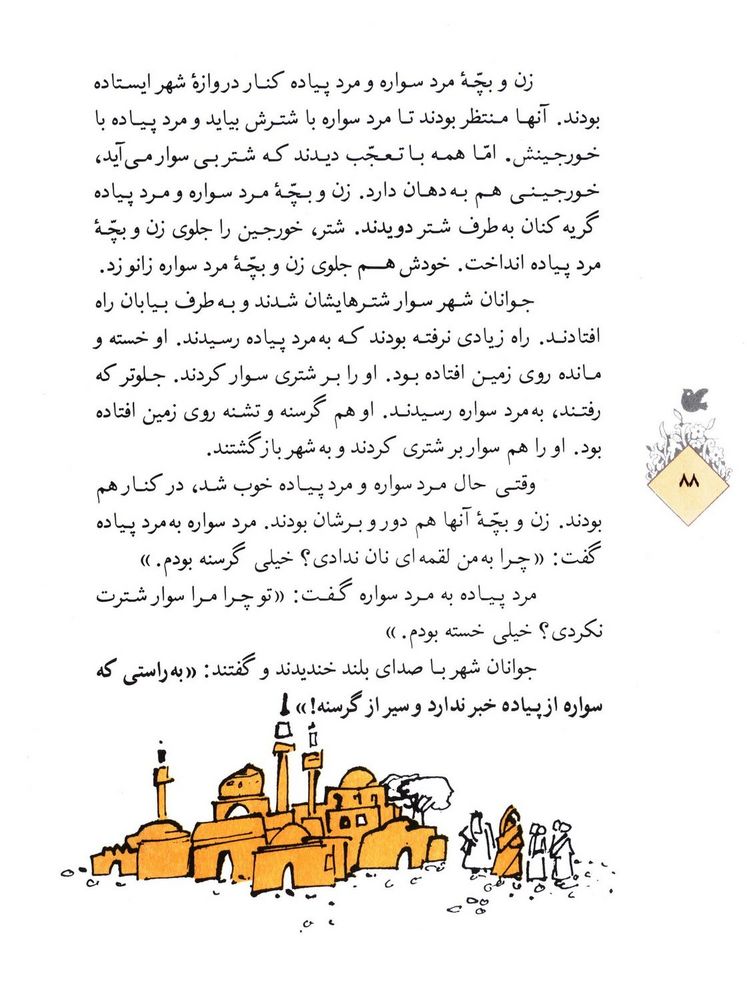 زن و بچّهٔ مرد سواره و مرد پیاده کنار دروازهٔ شهر ایستاده
بودند. آنها منتظر بودند تا مرد سواره با شترش بیاید و مرد پیاده با
خورجینش. امّا همه با تعجّب دیدند که شتر بی سوار می‌آید،
خورجینی هم به دهان دارد. زن و بچّهٔ مرد سواره و مرد پیاده
گریه کنان به طرف شتر دویدند. شتر، خورجین را جلوی زن و بچّهٔ
مرد پیاده انداخت. خودش هم جلوی زن و بچّهٔ مرد سواره زانو زد.
جوانان شهر سوار شترهایشان شدند و به طرف بیابان راه
افتادند. راه زیادی نرفته بودند که به مرد پیاده رسیدند. او خسته و
مانده روی زمین افتاده بود. او را بر شتری سوار کردند. جلوتر که
رفتند، به مرد سواره رسیدند. او هم گرسنه و تشنه روی زمین افتاده
بود. او را هم سوار بر شتری کردند و به شهر بازگشتند.
وقتی حال مرد سواره و مرد پیاده خوب شد، در کنار هم
بودند. زن و بچّهٔ آنها هم دور و برشان بودند. مرد سواره به مرد پیاده
گفت: «چرا به من لقمه ای نان ندادی؟ خیلی گرسنه بودم.»
مرد پیاده به مرد سواره گفت: «تو چرا مرا سوار شترت
نکردی؟ خیلی خسته بودم.»
جوانان شهر با صدای بلند خندیدند و گفتند: «به راستی که
سواره از پیاده خبر ندارد و سیر از گرسنه!»
۸۸